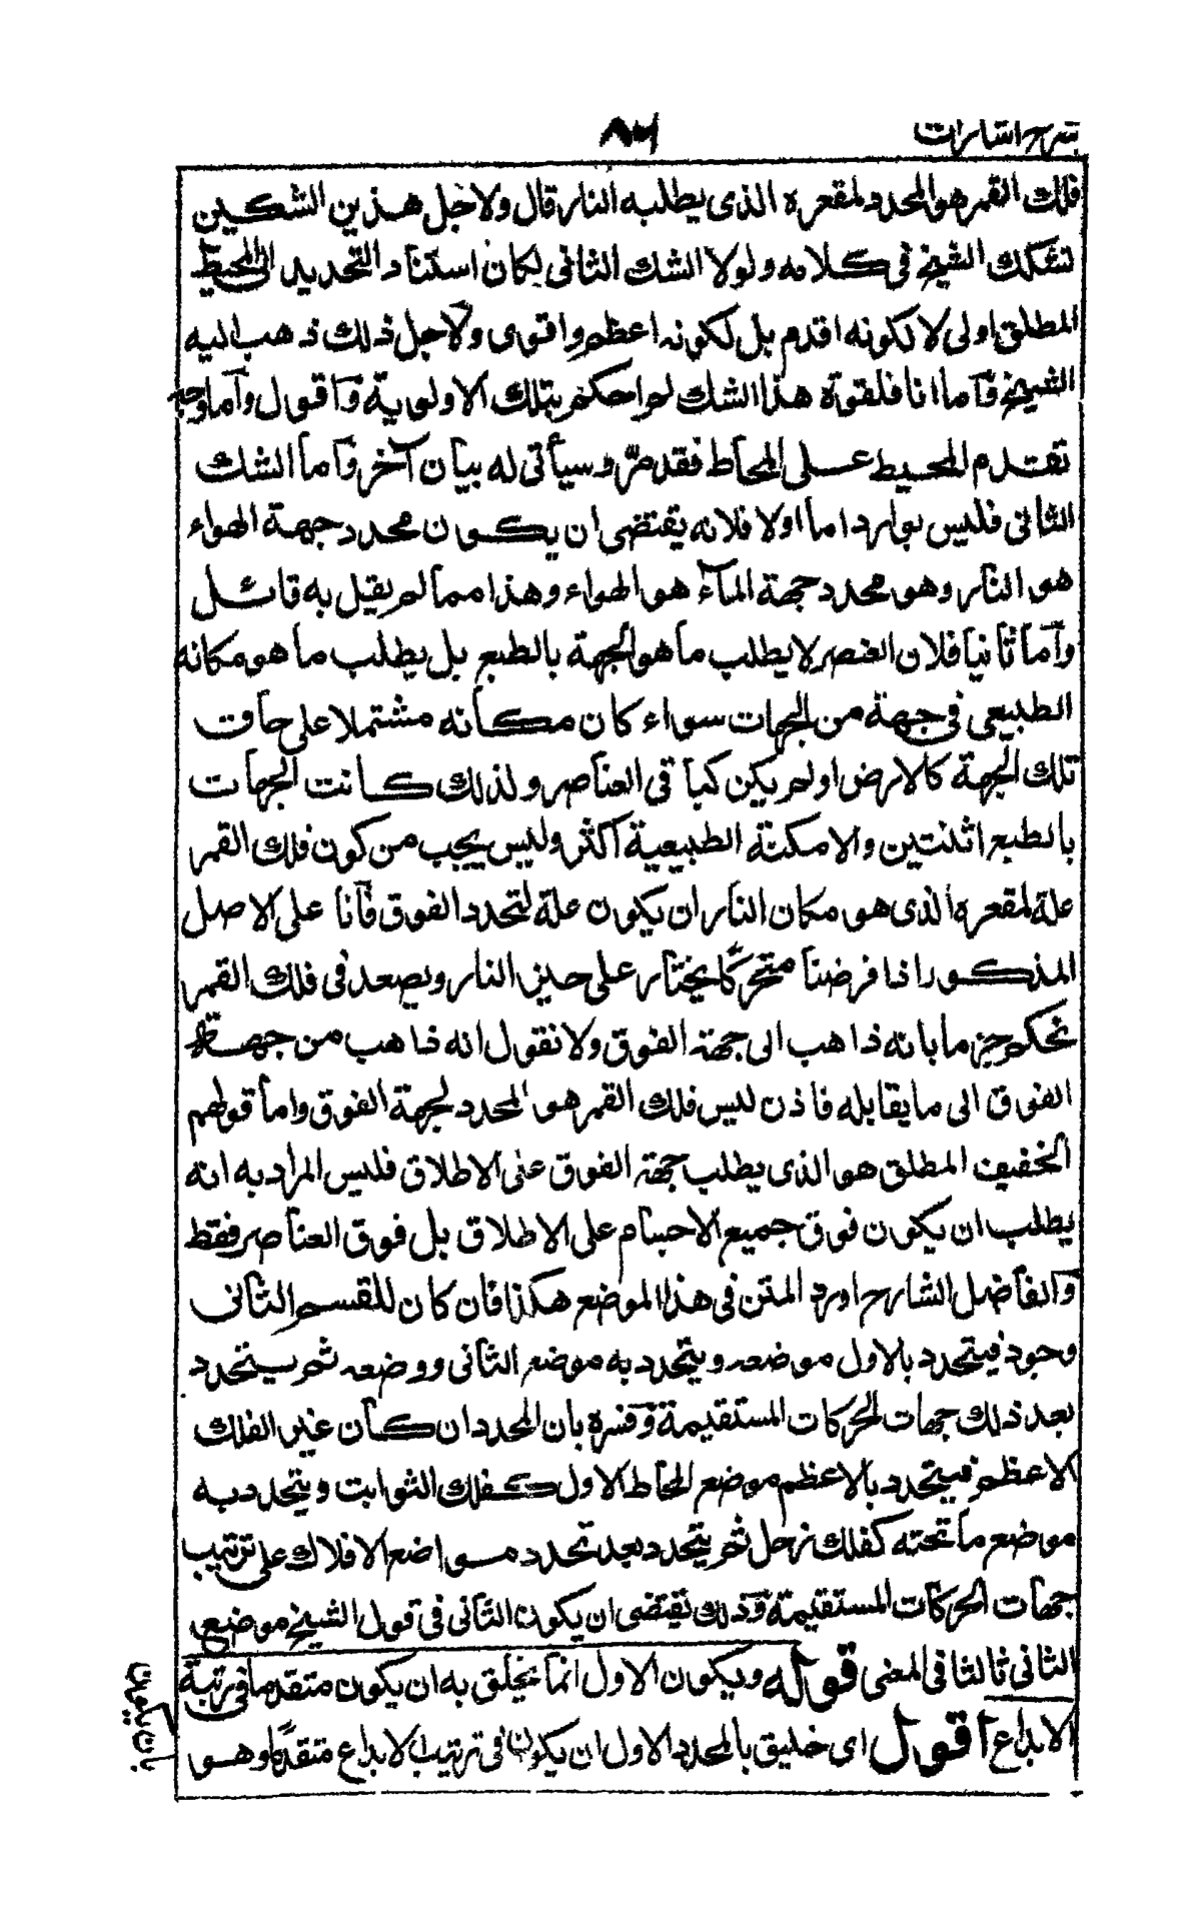 شرح اشارات
٨٦
فلك القمر هو المحدد لمقعره الذى يطلبه النار قال ولاجل هذين الشكين
تشكك الشيخ فى كلامه ولولا الشك الثانى لكان استناد التحديد الى المحيط
المطلق اولى لا لكونه اقدم بل لكونه اعظم واقوى ولاجل ذلك ذهب اليه
الشيخ واما انا فلقوة هذا الشك لم احكم بتلك الاولوية واقول واما وجه
تقدم المحيط على المحاط فقد مرّ وسيأتى له بيان آخر واما الشك
الثانى فليس بوارد اما اولا فلانه يقتضى ان يكون محدد جهة الهواء
هو النار وهو محدد جهة الماء هو الهواء وهذا مما لم يقل به قائل
واما ثانيا فلان العنصر لا يطلب ما هو الجهة بالطبع بل يطلب ما هو مكانه
الطبيعى فى جهة من الجهات سواء كان مكانه مشتملا على حاق
تلك الجهة كالارض او لم يكن كباقى العناصر ولذلك كانت الجهات
بالطبع اثنتين والامكنة الطبيعية اكثر وليس يجب من كون فلك القمر
علة لمقعره الذى هو مكان النار ان يكون علة لتحدد الفوق فانا على الاصل
المذكور اذا فرضنا متحركا يجتاز على حيز النار ويصعد فى فلك القمر
نحكم جزما بانه ذاهب الى جهة الفوق ولا نقول انه ذاهب من جهة
الفوق الى ما يقابله فاذن ليس فلك القمر هو المحدد لجهة الفوق واما قولهم
الخفيف المطلق هو الذى يطلب جهة الفوق على الاطلاق فليس المراد به انه
يطلب ان يكون فوق جميع الاجسام على الاطلاق بل فوق العناصر فقط
والفاضل الشارح اورد المتن فى هذا الموضع هكذا فان كان للقسم الثانى
وجود فيتحدد بالاول موضعه ويتحدد به موضع الثانى ووضعه ثم يتحدد
بعد ذلك جهات الحركات المستقيمة وفسره بان المحدد ان كان غير الفلك
الاعظم فيتحدد بالاعظم موضع المحاط الاول كفلك الثوابت ويتحدد به
موضع ما تحته كفلك زحل ثم يتحدد بعد تحدد مواضع الافلاك على ترتيب
جهات الحركات المستقيمة وذلك يقتضى ان يكون الثانى فى قول الشيخ موضع
الثانى ثالثا فى المعنى قوله ويكون الاول انما يخلق به ان يكون متقدما فى رتبة
الابداع اقول اى خليق بالمحدد الاول ان يكون فى ترتيب الابداع متقدما وهو